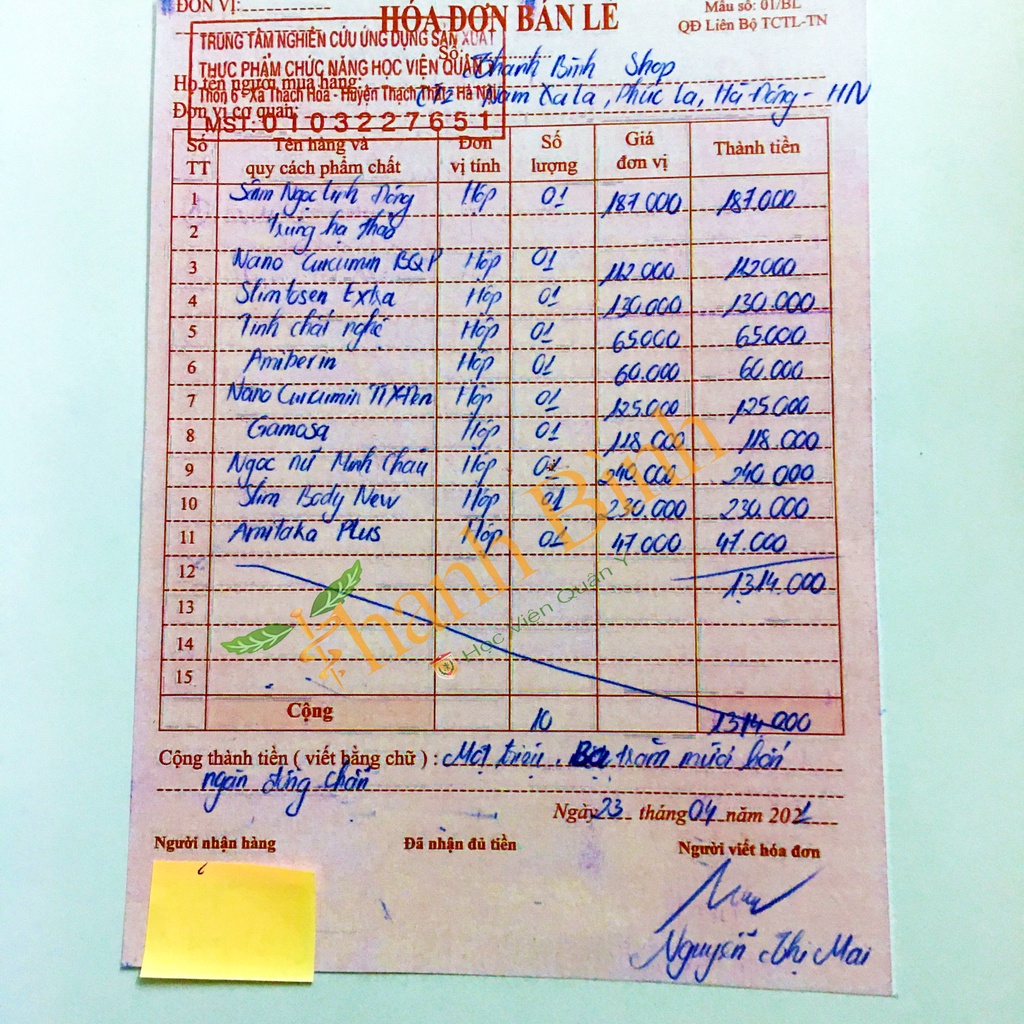 ĐƠN VỊ:
HÓA ĐƠN BÁN LẺ
Mẫu số: 01/BL
QĐ Liên Bộ TCTL-TN
TRUNG TÂM NGHIÊN CỨU ỨNG DỤNG SẢN XUẤT
THỰC PHẨM CHỨC NĂNG HỌC VIỆN QUÂN Y
Thôn 6 - Xã Thạch Hòa - Huyện Thạch Thất - Hà Nội
MST: 0103227651
Số:
Họ tên người mua hàng: Thanh Bình Shop
Đơn vị cơ quan: Xala, Phúc La, Hà Đông - HN
Số TT Tên hàng và quy cách phẩm chất Đơn vị tính Số lượng Giá đơn vị Thành tiền
1 Sâm Ngọc Linh Đông Hộp 01 187.000 187.000
2 Trùng hạ thảo
3 Nano Curcumin BQP Hộp 01 112.000 112.000
4 Slimtosen Extra Hộp 01 130.000 130.000
5 Tinh chất nghệ Hộp 01 65.000 65.000
6 Amiberin Hộp 01 60.000 60.000
7 Nano Curcumin Hộp 01 125.000 125.000
8 Gamosa Hộp 01 118.000 118.000
9 Ngọc nữ Minh Châu Hộp 01 240.000 240.000
10 Slim Body New Hộp 01 230.000 230.000
11 Amitaka Plus Hộp 01 47.000 47.000
12 1.314.000
13
14
15
Thanh Bình
Học Viện Quân Y
Cộng 10 1.314.000
Cộng thành tiền ( viết bằng chữ ) : Một triệu, Ba trăm mười bốn
ngàn đồng chẵn
Ngày 23 tháng 04 năm 2021
Người nhận hàng Đã nhận đủ tiền Người viết hóa đơn
Nguyễn Thị Mai